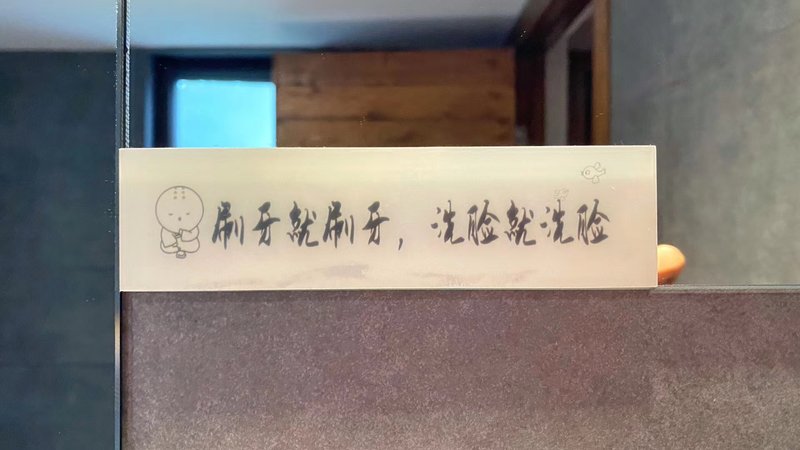 刷牙就刷牙，洗脸就洗脸